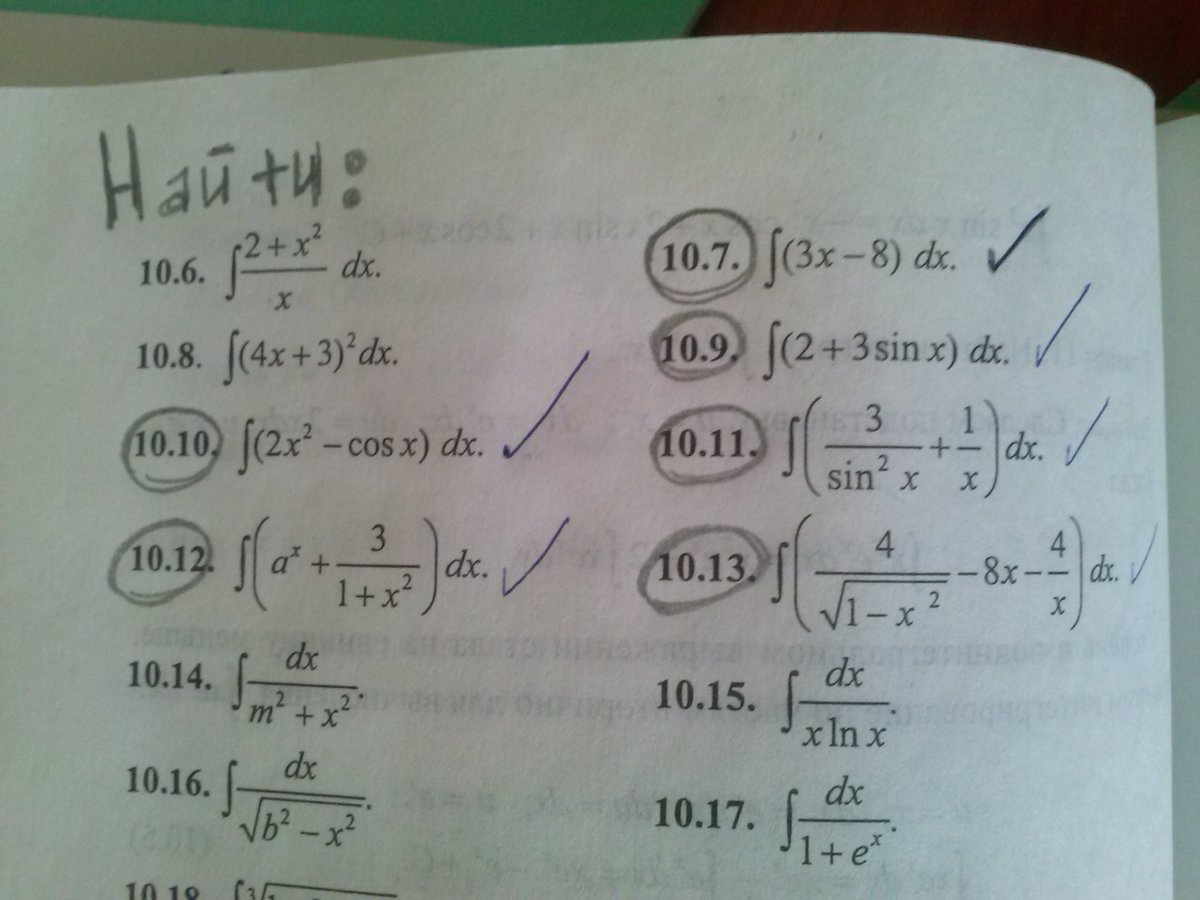 Найти:
10.6. ∫ (2 + x²)/x dx. 10.7. ∫(3x – 8) dx.
10.8. ∫(4x + 3)² dx. 10.9. ∫(2 + 3 sin x) dx.
10.10. ∫(2x² – cos x) dx. 10.11. ∫(3/sin² x + 1/x) dx.
10.12. ∫(aˣ + 3/(1 + x²)) dx. 10.13. ∫(4/√(1 – x²) – 8x – 4/x) dx.
10.14. ∫ dx/(m² + x²). 10.15. ∫ dx/(x ln x).
10.16. ∫ dx/√(b² – x²). 10.17. ∫ dx/(1 + eˣ).
10.18.